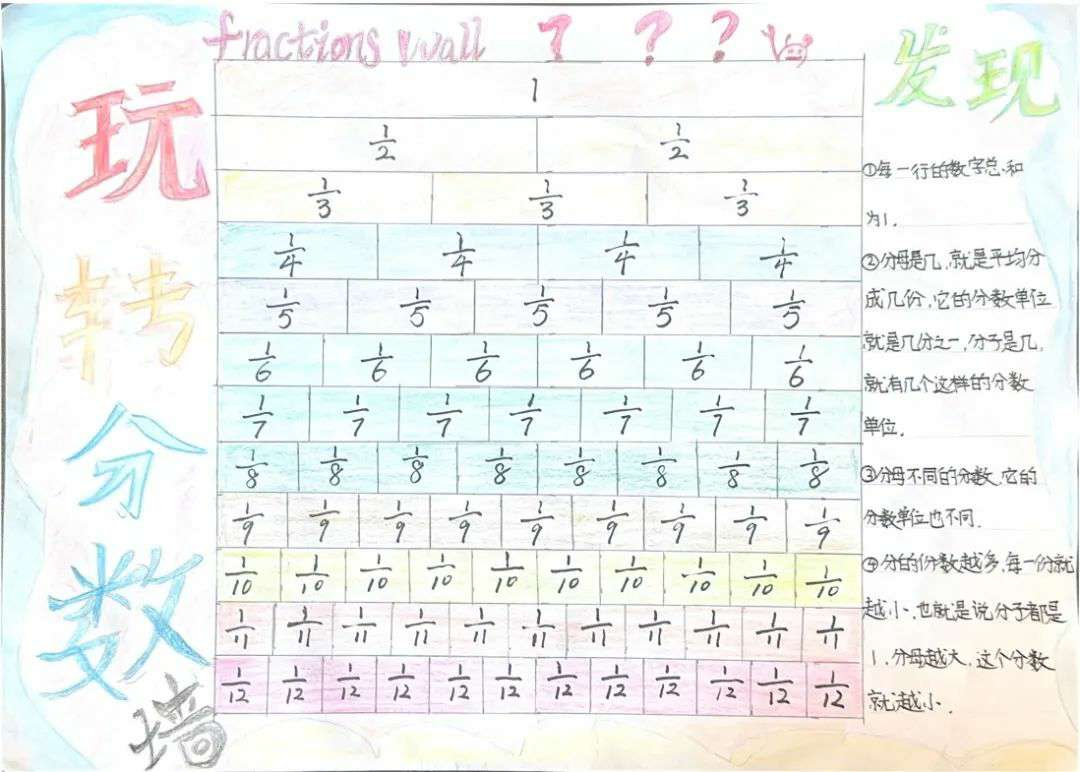 fractions wall ? ? ?
玩
转
分
数
墙
1
1/2 1/2
1/3 1/3 1/3
1/4 1/4 1/4 1/4
1/5 1/5 1/5 1/5 1/5
1/6 1/6 1/6 1/6 1/6 1/6
1/7 1/7 1/7 1/7 1/7 1/7 1/7
1/8 1/8 1/8 1/8 1/8 1/8 1/8 1/8
1/9 1/9 1/9 1/9 1/9 1/9 1/9 1/9 1/9
1/10 1/10 1/10 1/10 1/10 1/10 1/10 1/10 1/10 1/10
1/11 1/11 1/11 1/11 1/11 1/11 1/11 1/11 1/11 1/11 1/11
1/12 1/12 1/12 1/12 1/12 1/12 1/12 1/12 1/12 1/12 1/12 1/12
发现
①每一行的数字总和
为1.
②分母是几,就是平均分
成几份,它的分数单位
就是几分之一,分子是几,
就有几个这样的分数
单位.
③分母不同的分数,它的
分数单位也不同.
④分的份数越多,每一份就
越小,也就是说分子都是
1,分母越大,这个分数
就越小.